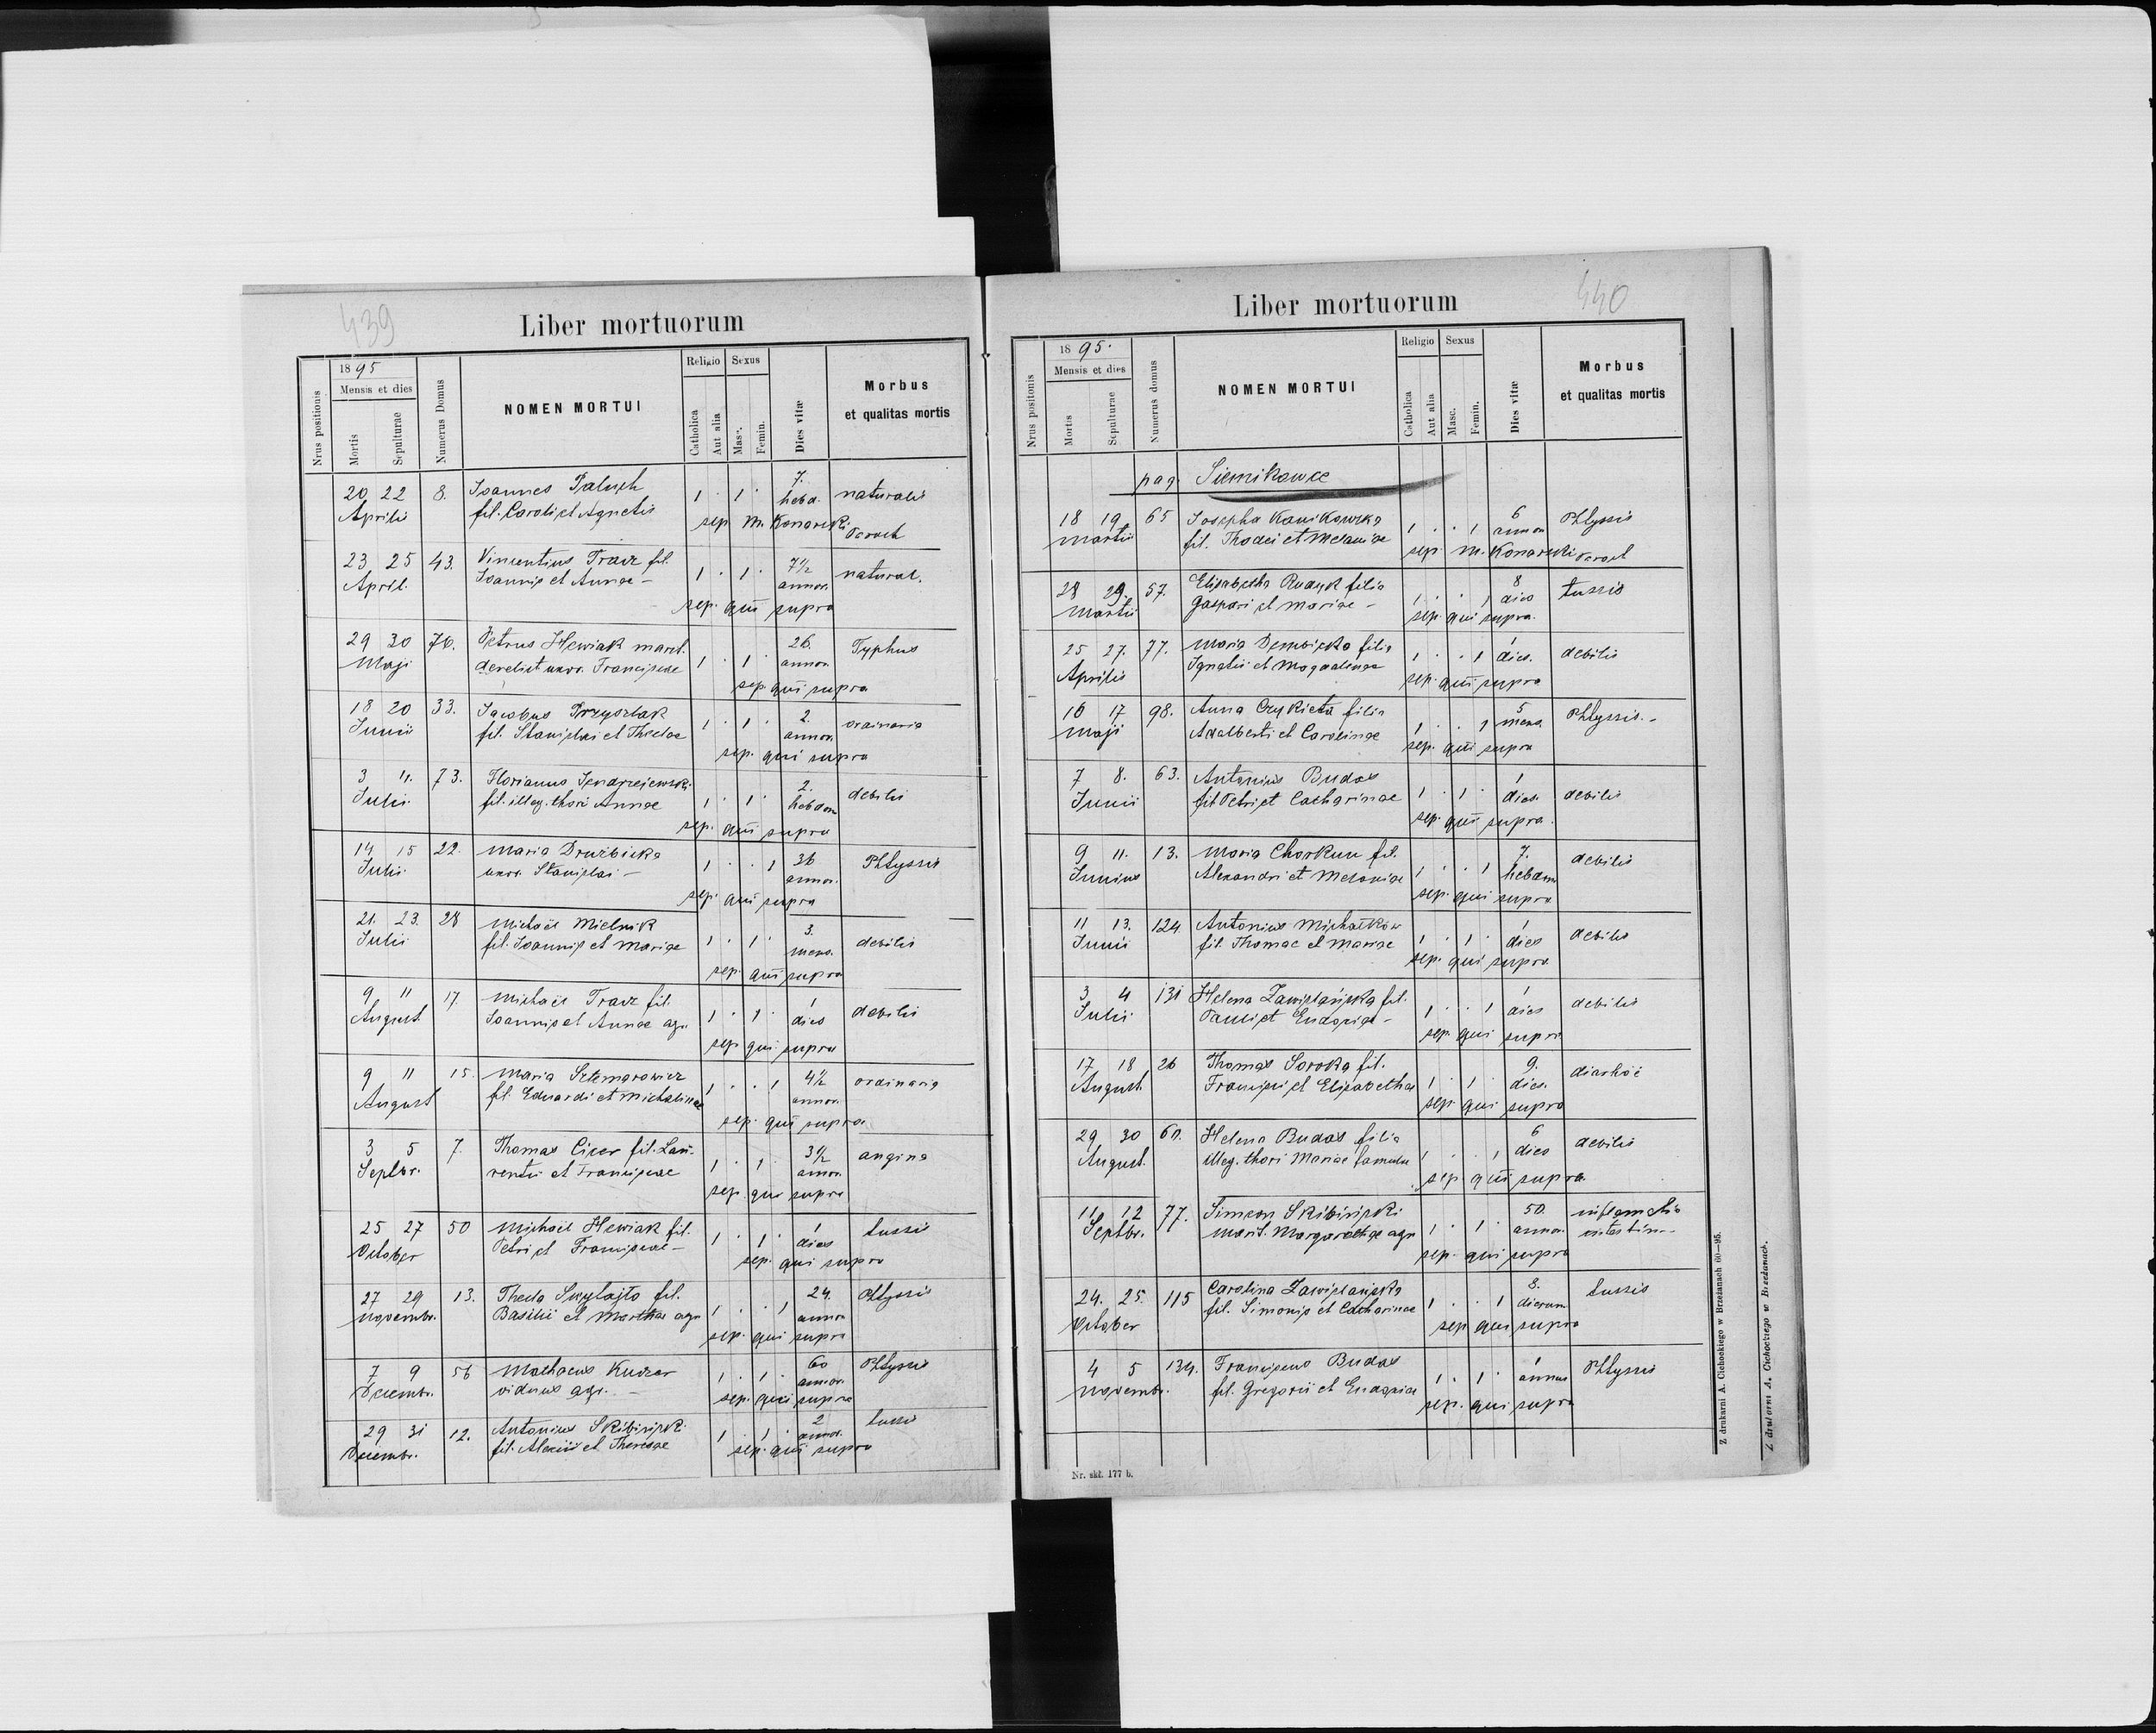 439
Liber mortuorum
Nrus positionis
1895
Mensis et dies
Mortis
Sepulturae
Numerus Domus
NOMEN MORTUI
Religio
Catholica
Aut alia
Sexus
Masc.
Femin.
Dies vitæ
Morbus
et qualitas mortis
20 22 8. Joannes Paluch 7.
Aprilis fil. Caroli et Agnetis 1 · 1 · hebd. naturalis
sep. M. Konarski Paroch
23 25 43. Vincentius Tracz fil. 7½
April. Joannis et Annae – 1 · 1 · annor. natural.
sep. qui supra
29 30 76. Petrus Hewiak marit. 26. Typhus
Maji derelict uxor. Franciscae 1 · 1 · annor.
sep. qui supra
18 20 33. Jacobus Przyszlak 2. ordinaria
Junii fil. Stanislai et Theclae 1 · 1 · annor.
sep. qui supra
3 4. 73. Florianus Jendrzejewski 2. debilis
Julii fil. illeg. thori Annae 1 · 1 · hebdom
sep. qui supra
14 15 22. Maria Drużbicka 36 Phtyssis
Julii uxor. Stanislai – 1 · · 1 annor.
sep. qui supra
21. 23. 28 Michaël Mielnik 3. debilis
Julii fil. Joannis et Mariae 1 · 1 · mens.
sep. qui supra
9 11 17. Michaël Tracz fil. 1 debilis
August. Joannis et Annae agr. 1 · 1 · dies
sep. qui supra
9 11 15. Maria Sztemarowicz 4½ ordinaria
August fil. Eduardi et Michalinae 1 · · 1 annor.
sep. qui supra
3 5 7. Thomas Cicer fil. Lau- 3½ angina
Septbr. rentii et Franciscae 1 · 1 annor.
sep. qui supra
25 27 50 Michaël Hewiak fil. 1 tussis
October Petri et Franciscae – 1 · 1 · dies
sep. qui supra
27 29 13. Thecla fil. 24. Phtyssis
Novembr. Basilii et Marthae agr. 1 · · 1 annor.
sep. qui supra
7 9 56 Mathaeus 60 Phtyssis
Decembr. viduus agr. – 1 · 1 · annor.
sep. qui supra
29 31 12. Antonius Skibinski 2 tussis
Decembr. fil. Alexii et Theresae 1 · 1 · annor.
sep. qui supra
440
Liber mortuorum
Nrus positonis
1895.
Mensis et dies
Mortis
Sepulturae
Numerus domus
NOMEN MORTUI
Religio
Catholica
Aut alia
Sexus
Masc.
Femin.
Dies vitæ
Morbus
et qualitas mortis
pag. Siemikowce
18 19 65 Josepha Kanikowska 6 Phtyssis
Martii fil. Thadei et Melaniae 1 · · 1 annor
sep. M. Konarski Paroch
28 29. 57. Elisabetha Rudyk filia 8 tussis
Martii Gaspari et Mariae – 1 · · 1 dies
sep. qui supra.
25 27. 77. Maria Dembicka filia 1 debilis
Aprilis Ignatii et Magdalenae 1 · · 1 dies.
sep. qui supra
16 17 98. Anna Czykieta filia 5 Phtyssis. –
Maji Adalberti et Carolinae 1 · · 1 mens.
sep. qui supra
7 8. 63. Antonius Budas 1 debilis
Junii fil Petri et Catharinae 1 · 1 · dies.
sep. qui supra.
9 11. 13. Maria Chorkun fil. 7. debilis
Junius Alexandri et Melaniae 1 · · 1 hebdom
sep. qui supra
11 13. 124. Antonius Michałków 1 debilis
Junii fil. Thomae et Mariae 1 · 1 · dies
sep. qui supra.
3 4 131 Helena Zawislańska fil. 1 debilis
Julii Pauli et Eudoxiae – 1 · · 1 dies
sep. qui supra
17 18 26 Thomas Soroka fil. 9. diarhoë
August. Francisci et Elisabethae 1 · 1 · dies.
sep. qui supra
29 30 60. Helena Budas filia 6 debilis
August. illeg. thori Mariae famulae 1 · · 1 dies
sep. qui supra.
11 12 77. Simeon Skibinski 50. inflamatio
Septbr. marit. Margarethae agr. 1 · 1 · annor. intestin. –
sep. qui supra
24. 25. 115 Carolina Zawislańska 8. tussis
October fil. Simonis et Catharinae 1 · · 1 dierum
sep qui supra
4 5 134. Franciscus Budas 1 Phtyssis
Novembr. fil. Gregorii et Eudoxiae 1 · 1 · annus
sep. qui supra
Nr. skł. 177 b.
Z drukarni A. Cichockiego w Brzeżanach 60—95.
Z drukarni A. Cichockiego w Brzeżanach.